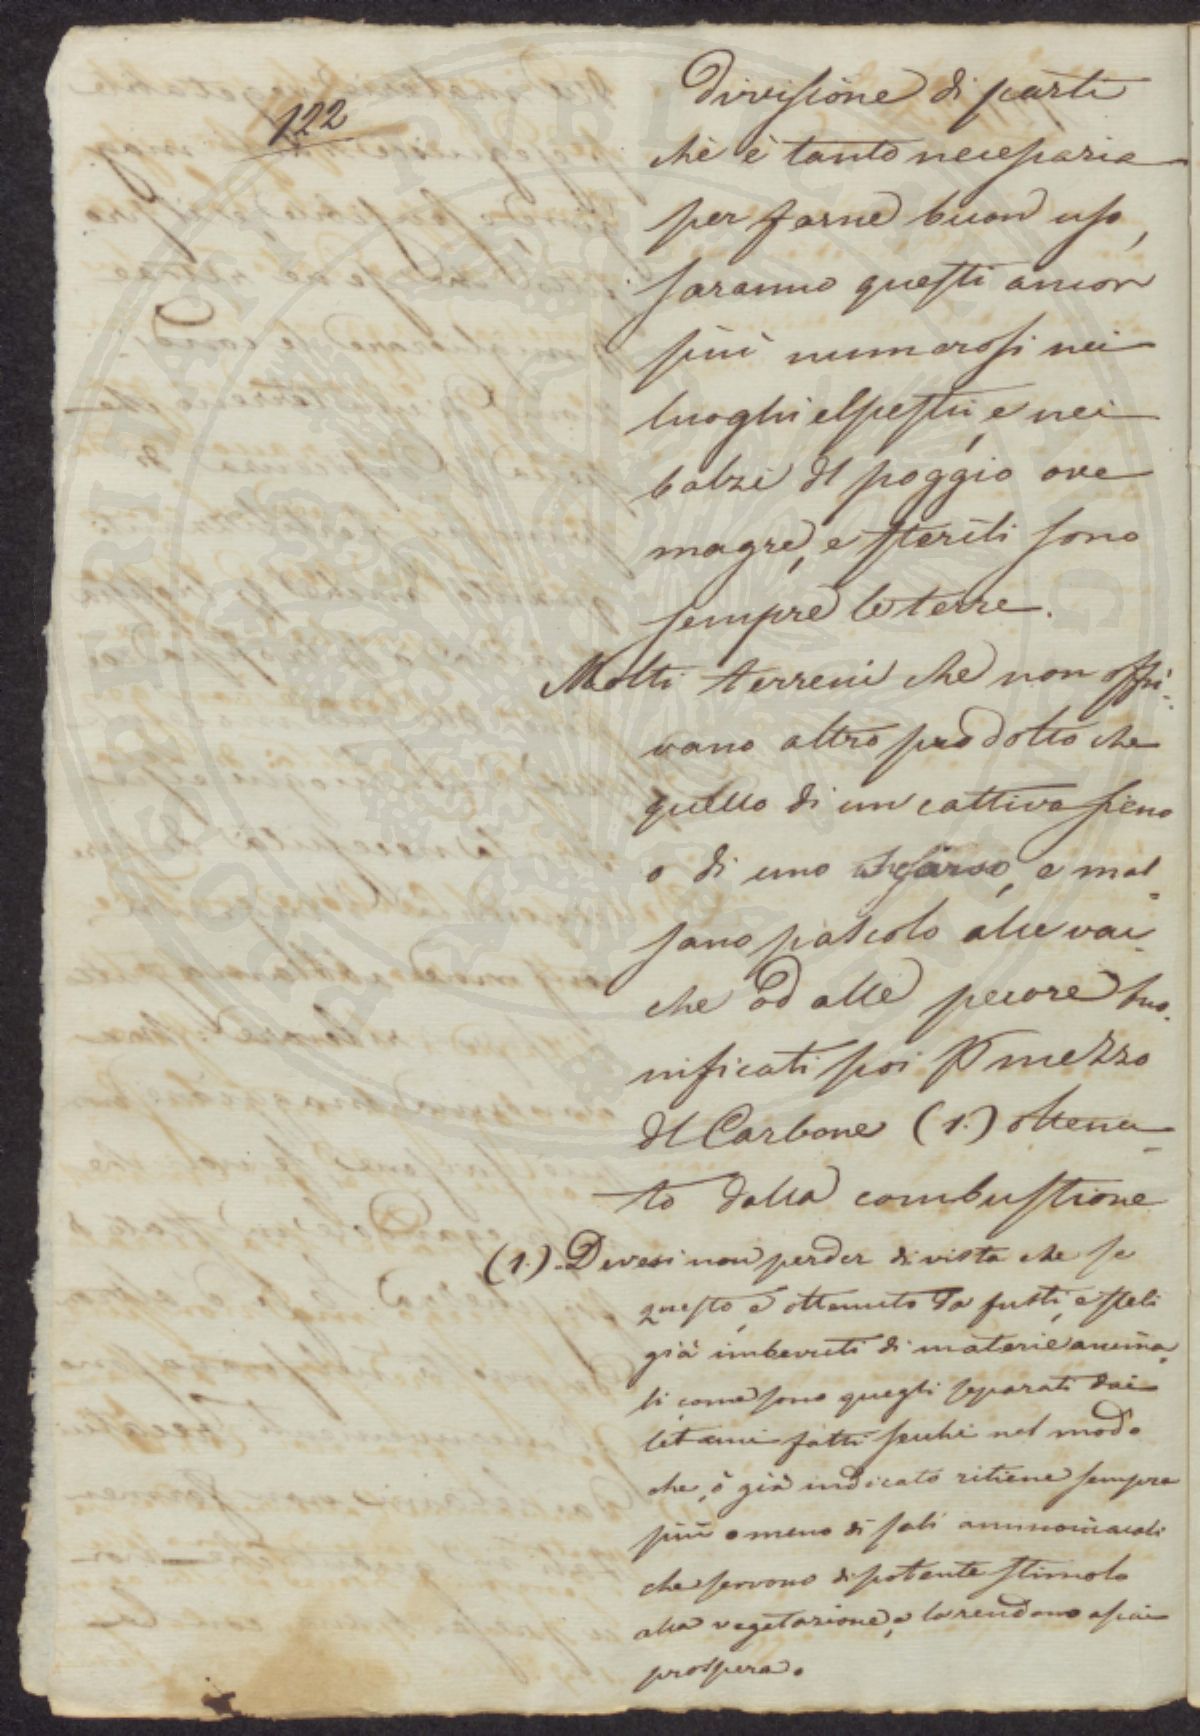 122
divisione di parti
chè è tanto necessaria
per farne buon uso,
saranno questi ancor
più numerosi nei
luoghi alpestri, e nei
balzi dl poggio ove
magre, e sterili sono
sempre le terre.
Molti terreni che non offri-
vano altro prodotto che
quello di un cattivo fieno
o di uno scarso, e mal-
sano pascolo alle vac-
che od alle pecore bo-
nificati poi p mezzo
dl Carbone (1.) ottenu-
to dalla combustione
(1.) Devesi non perder di vista che se
questo, è ottenuto da fusti, e steli
già imbevuti di materie anima-
li, come sono quegli separati dai
letami fatti secchi nel modo
che, ò già indicato ritiene sempre
più o meno di sali ammoniacali
che servono di potente stimolo
alla vegetazione, e la rendono assai
prospera.